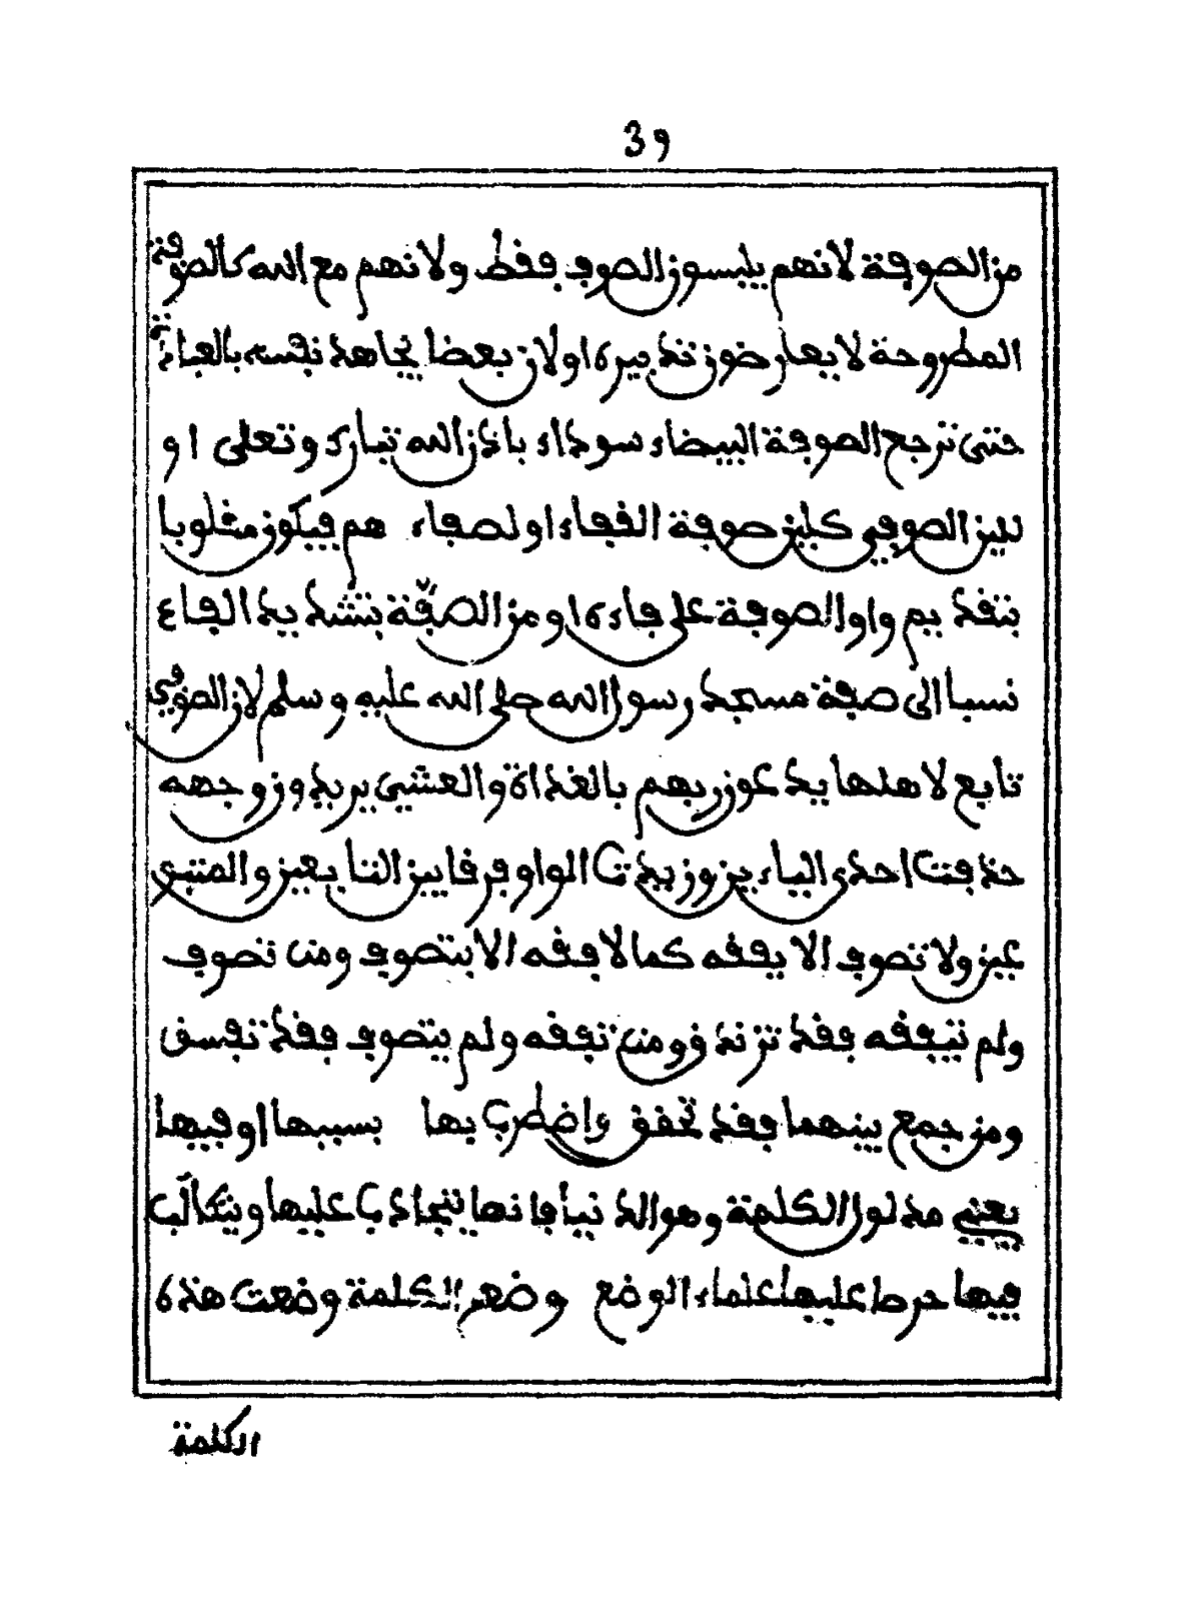 39
من الصوفة لانهم يلبسون الصوف فقط ولانهم مع الله كالصوفة
المطروحة لا يعارضون تدبيره اولان بعضا يجاهد نفسه بالعبادة
حتى ترجع الصوفة البيضاء سوداء باذن الله تبارك وتعلى او
للين الصوفي كلين صوفة القفاء اولصفاءهم فيكون مقلوبا
بتقديم واو الصوفة على فاءه او من الصفّة بتشديد الفاء
نسبا الى صفة مسجد رسول الله صلى الله عليه وسلم لان الصوفي
تابع لاهلها يدعون ربهم بالغداة والعشي يريدون وجهه
حذفت احدى الياءين وزيدت الواو فرقا بين التابعين والمتبو
عين ولا تصوف الا بفقه كما لا فقه الا بتصوف ومن تصوف
ولم يتفقه فقد تزندق ومن تفقه ولم يتصوف فقد تفسق
ومن جمع بينهما فقد تحقق واضطرب بها بسببها او فيها
يعني مدلول الكلمة وهو الدنيا فانها يتجاذب عليها ويتكالب
فيها حرصا عليها علماء الوضع وضعوا الكلمة وضعت هذه
الكلمة